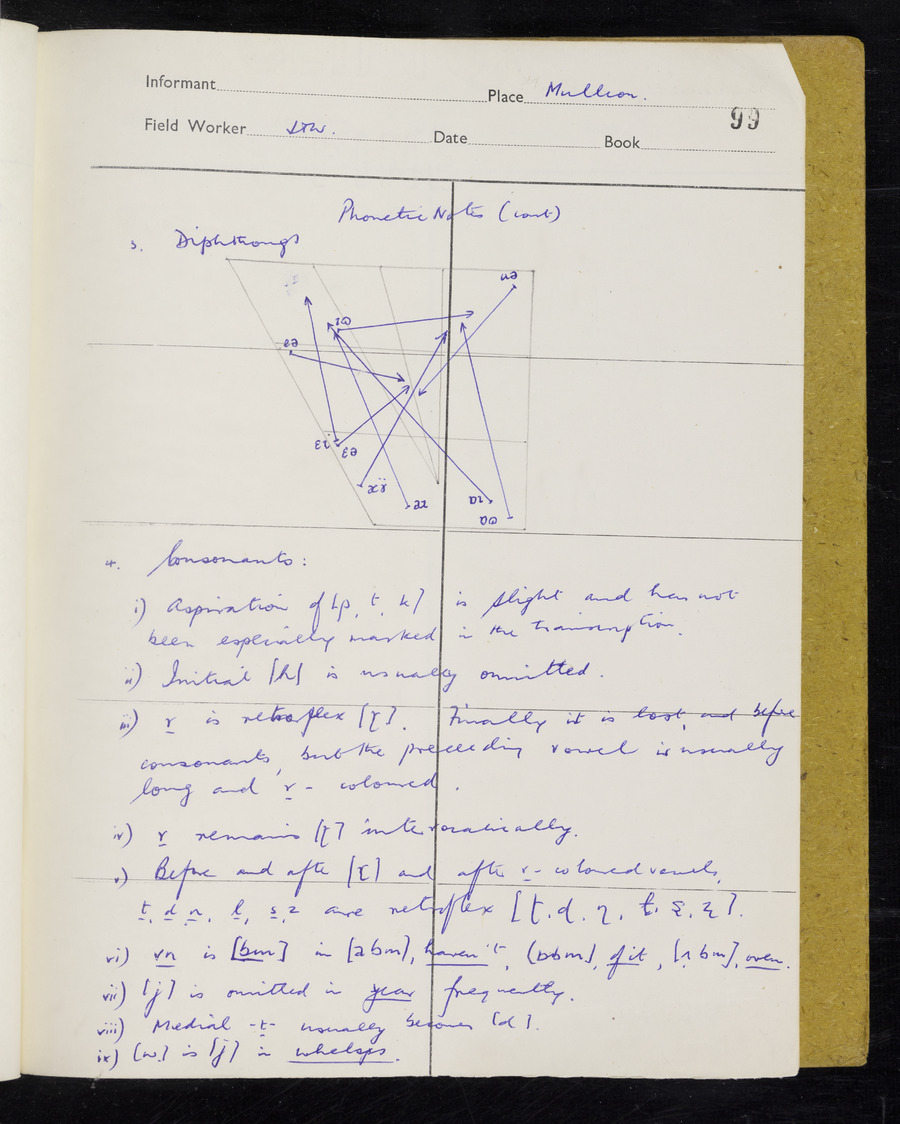 Informant Place Mullion.
99
Field Worker Date Book
Phonetic Notes (cont)
3. Diphthongs
4. Consonants:
i) Aspiration of [p, t, k] is slight and has not
been especially marked in the transcription.
ii) Initial [h] is usually ommitted.
iii) r is retroflex [ɽ]. Finally it is lost, and before
consonants, but the preceeding vowel is usually
long and r-coloured.
iv) r remains [ɽ] intervocalically.
v) Before and after [ɽ] and after r-coloured vowels,
t, d, n, l, s, z are retroflex [ʈ, ɖ, ɳ, ɭ, ʂ, ʐ].
vi) vn is [bm] in [abm], haven't, [ɒbm], of it, [ʌbm], oven.
vii) [j] is omitted in year frequently.
viii) Medial -t- usually becomes [d].
ix) [w] is [j] in whelps.